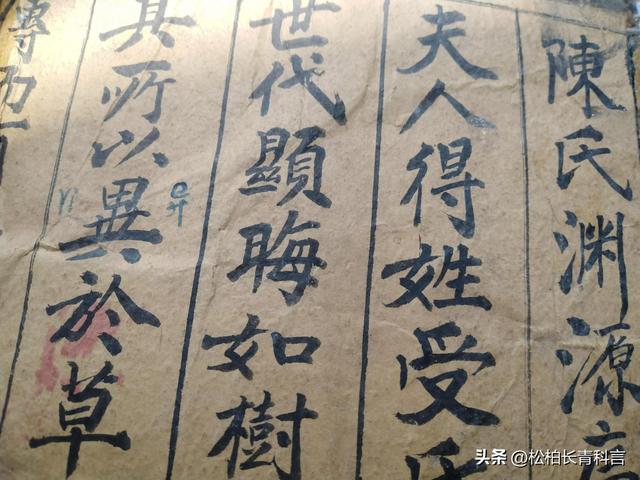 陳氏渊源
夫人得姓受氏
世代顯晦如樹
其所以異於草
异
头条 @松柏长青科言